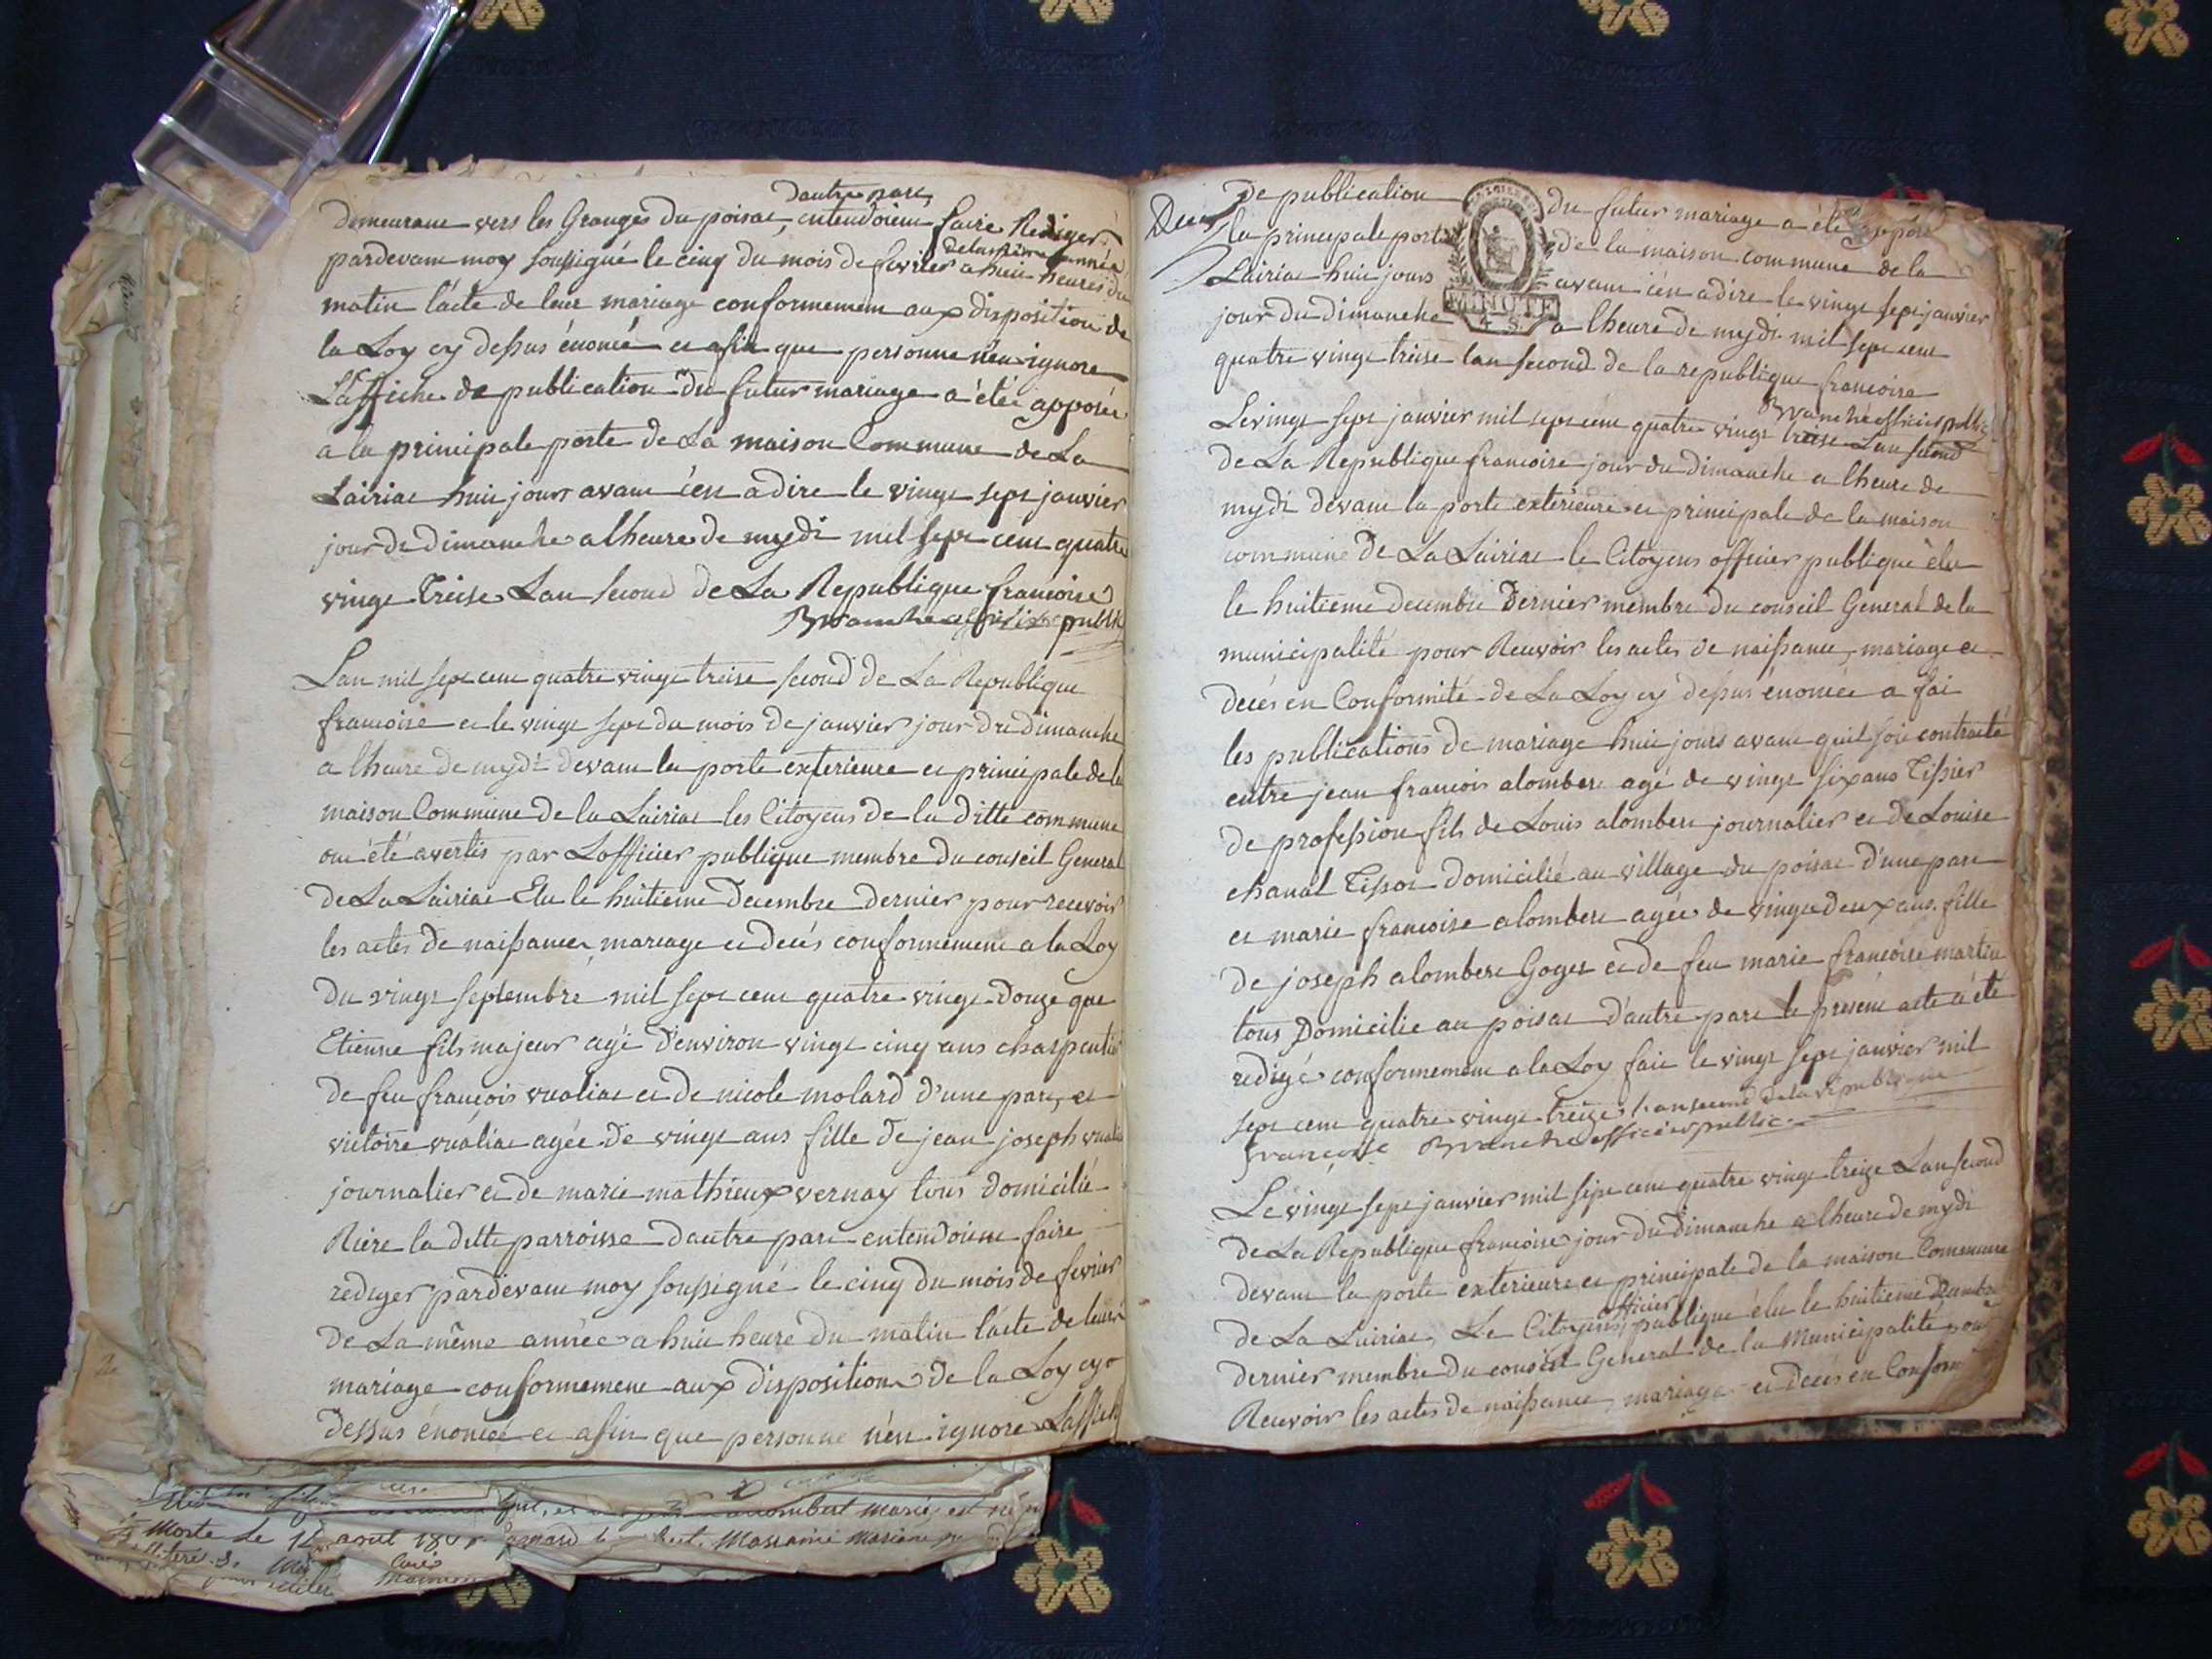 dautre part
demeurant vers les Granges du poisat, entendoient faire Rediger
de la même année
pardevant moy soussigné le cinq du mois de fevrier a huit heures du
matin l'acte de leur mariage conformement aux disposition de
la Loy cy dessus énoncé et afin que personne n'en ignore
L'affiche de publication du futur mariage a été apposée
a la principale porte de La maison Commune de La
Lairiat huit jours avant c'est a dire le vingt sept janvier
jour de dimanche a lheure de mydi mil sept cent quatre
vingt Treise Lan second de La Republique francoise
officier public
Lan mil sept cent quatre vingt treise second de La Republique
francoise et le vingt sept du mois de janvier jour du dimanche
a lheure de mydi devant la porte exterieure et principale de la
maison Commune de la Lairiat les Citoyens de la ditte commune
ont été avertis par Lofficier publique membre du conseil General
de La Lairiat Elu le huitieme Decembre dernier pour recevoir
les actes de naissance, mariage et decés conformement a la Loy
du vingt septembre mil sept cent quatre vingt douze que
Etienne fils majeur agé d'environ vingt cinq ans charpentier
de feu françois vualiat et de nicole molard d'une part, et
victoire vualiat agée de vingt ans fille de jean joseph vualiat
journalier et de marie mathieux vernay tous domicilié
Riere la ditte parroisse dautre part entendoient faire
rediger pardevant moy soussigné le cinq du mois de fevrier
de La même année a huit heure du matin l'acte de leur
mariage conformement aux disposition de la Loy cy
dessus énoncée et afin que personne n'en ignore Laffiche
de publication du futur mariage a été apposé
la principale porte de la maison commune de la
Lairiat huit jours avant c'est adire le vingt sept janvier
MINUTE
4 S.
jour du dimanche a lheure de mydi mil sept cent
quatre vingt treise lan second de la republique francoise
officier public
Le vingt sept janvier mil sept cent quatre vingt treise Lan second
de La Republique francoise jour du dimanche a lheure de
mydi devant la porte exterieure et principale de la maison
commune de La Lairiat le Citoyens officier publique élu
le huitieme decembre Dernier membre du conseil General de la
municipalité pour Recevoir les actes de naissance, mariage et
decés en Conformité de La Loy cy dessus énoncée a fai
les publications de mariage huit jours avant quil soit contracté
entre jean francois alombert agé de vingt six ans Tissier
de profession fils de Louis alombert journalier et de Louise
chanal Tissot domicilié au village du poisat d'une part
et marie francoise alombert agée de vingt deux ans fille
de joseph alombert Goget et de feu marie francoise martin
tous Domicilie au poisat d'autre part le present acte a été
redigé conformement a la Loy fait le vingt sept janvier mil
sept cent quatre vingt treize Lan second de la republique
francoise officier public
Le vingt sept janvier mil sept cent quatre vingt treize Lan second
de La Republique francoise jour du dimanche a lheure de mydi
devant la porte exterieure et principale de la maison Commune
officier
de La Lairiat, Le Citoyens publique élu le huitieme Decembre
dernier membre du conseil General de la Municipalité pour
Recevoir les actes de naissance, mariage et decés en Conform
alombert
Morte le 12 aout